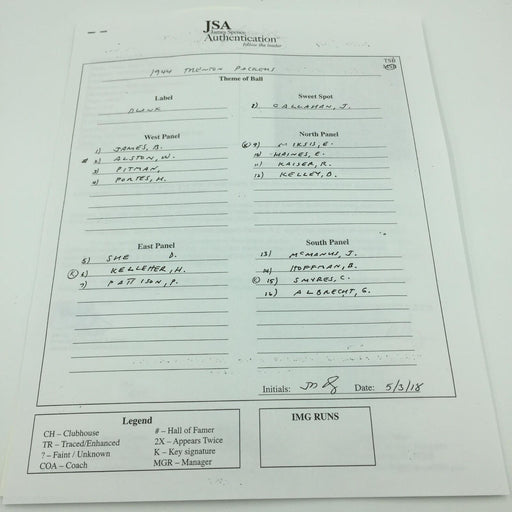 JSA
James Spence
Authentication
follow the leader
TSB
MSB
1944 TRENTON PACKERS
Theme of Ball
Label
BLANK
Sweet Spot
8) CALLAHAN, J.
West Panel
1) JAMES, B.
# 2) ALSTON, W.
3) PITMAN,
4) PORTES, H.
North Panel
K 9) MIKSIS, E.
10) HAINES, E.
11) KAISER, R.
12) KELLEY, D.
East Panel
5) SHE D.
K 6) KELLEHER, H.
7) PATTISON, P.
South Panel
13) MCMANUS, J.
14) HOFFMAN, B.
K 15) SMYRES, C.
16) ALBRECHT, G.
Initials: Date: 5/3/18
Legend
CH – Clubhouse
TR – Traced/Enhanced
? – Faint / Unknown
COA – Coach
# – Hall of Famer
2X – Appears Twice
K – Key signature
MGR – Manager
IMG RUNS